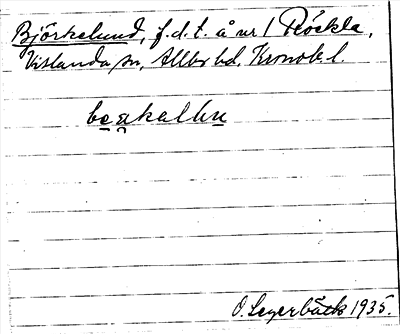 Björkelund, f.d.t. å nr 1 Röckla,
Vislanda sn, Allbo hd, Kronob. l.
O. Legerbäck 1935.